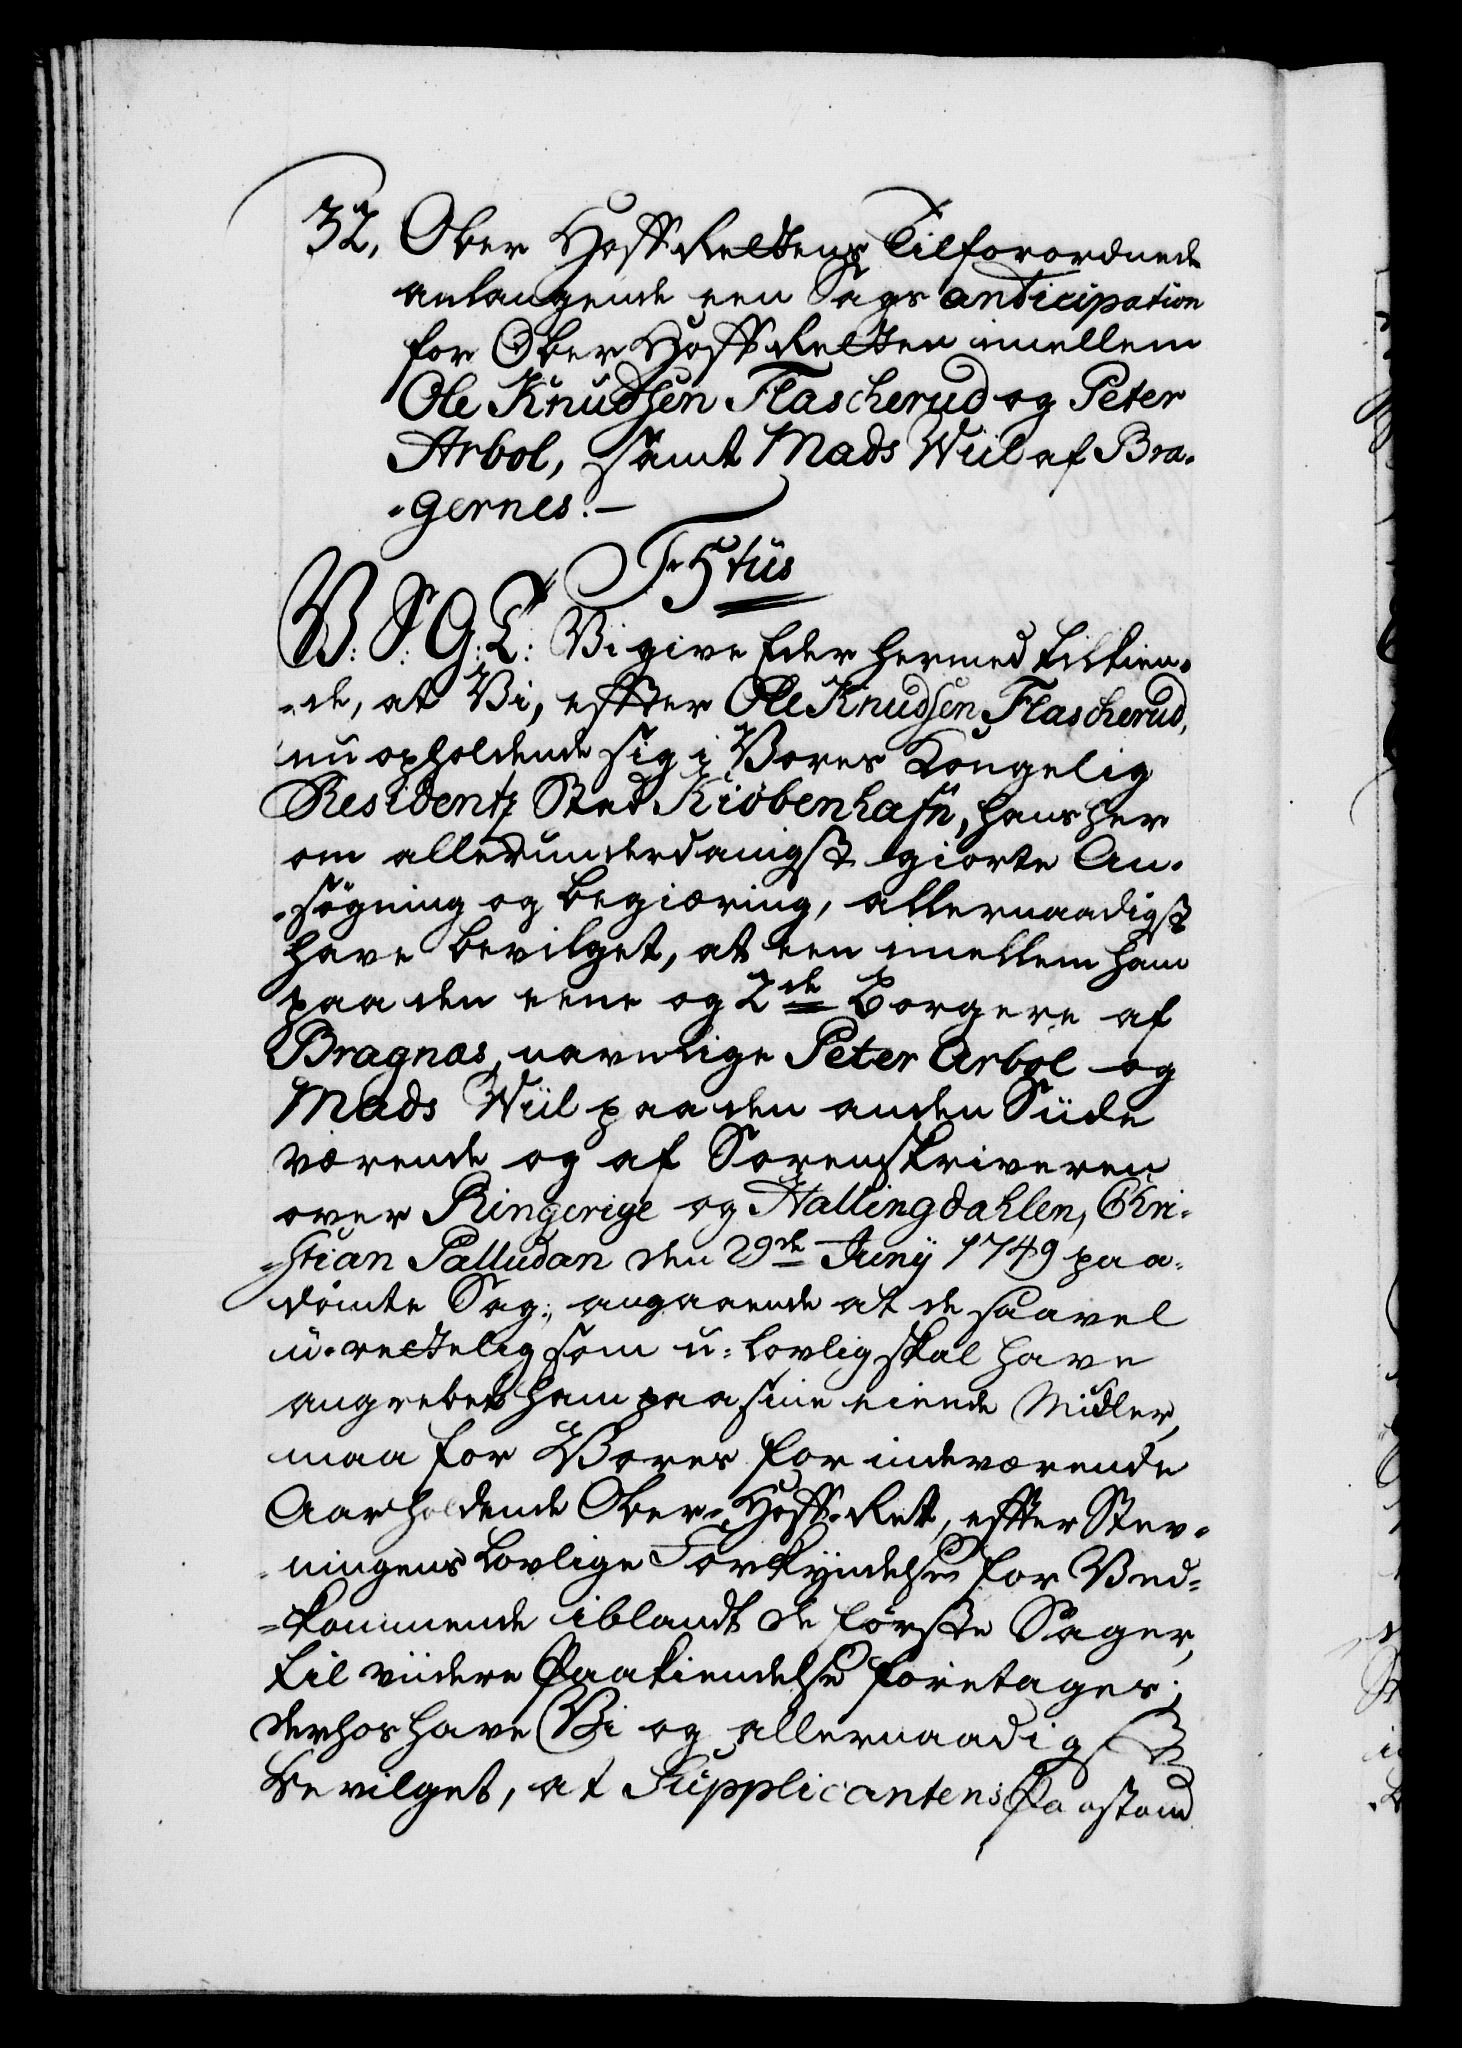 32, Ober Hoff-Rettens Tilforordnede
anlangende een Sags anticipation
for Ober Hoff Retten imellem
Ole Knudsen Flascherud og Peter
Arbol, samt Mads Wiil af Bra-
-gernes.-
F5tus
V: S: G: T: Vi give Eder hermed tilkien-
-de, at Vi, effter Ole Knudsen Flascherud,
nu opholdende sig i Vores Kongelig
Residentz Stad Kiöbenhafn, hans her
om allerunderdanigst giorte An-
-søgning og begiæring, allernaadigst
have bevilget, at een imellem ham
paa den eene og 2de Borgere af
Bragnæs, navnlige Peter Arbol og
Mads Wiil paa den anden Siide
værende og af Sorenskriveren
over Ringerige og Hallingdahlen, Chri-
-stian Palludan den 29de Junij 1749 paa-
dömte Sag, angaaende at de saavel
u-rettelig som u-lovlig skal have
angrebet ham paa sine eiende Midler,
maa for Vores for indeværende
Aar holdende Ober-Hoff-Rett, effter Stev-
-ningens lovlige Forkyndelse for Ved-
-kommende iblandt de første Sager,
til viidere Paakiendelse foretages;
derhos have Vi og allernaadigst
bevilget, at Supplicantens Paastand